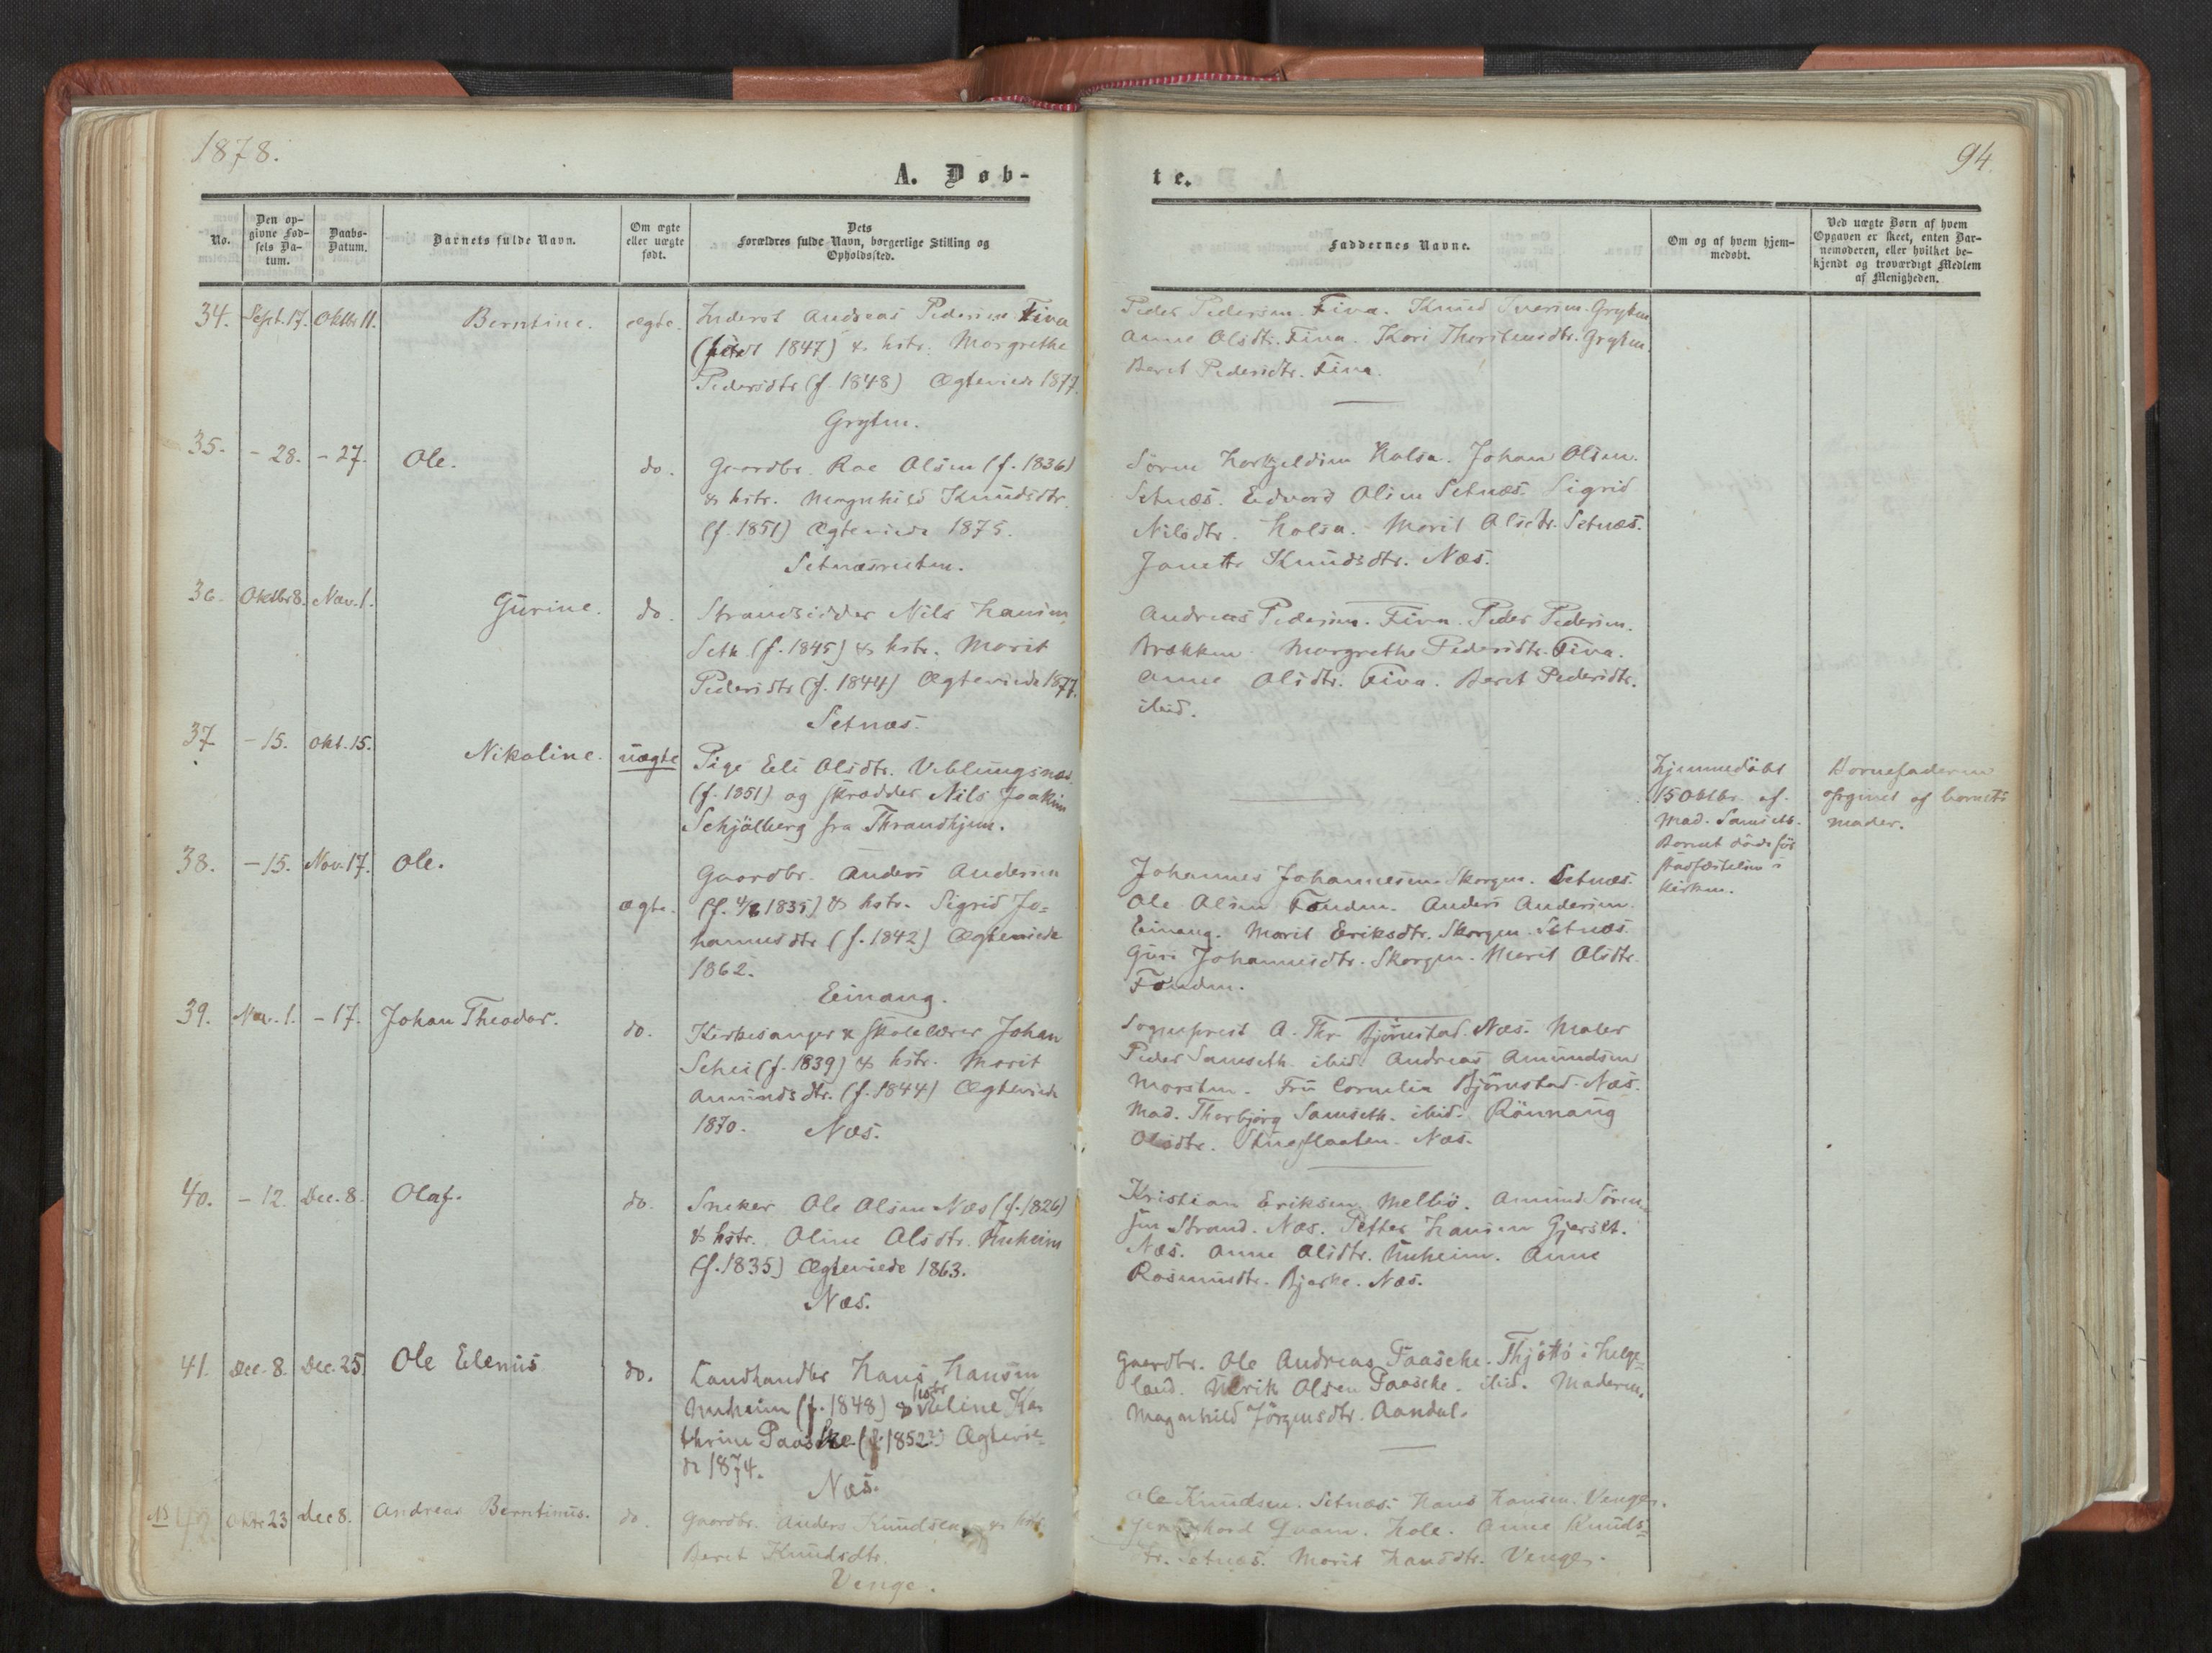 1878.
94.
A. Døb-
te.
No.
Den op-
givne Fød-
sels Da-
tum.
Daabs-
Datum.
Barnets fulde Navn.
Om ægte
eller uægte
født.
Dets
Forældres fulde Navn, borgerlige Stilling og
Opholdssted.
Faddernes Navne.
Om og af hvem hjem-
medøbt.
Ved uægte Børn af hvem
Opgaven er skeet, enten Bar-
nemoderen, eller hvilket be-
kjendt og troværdigt Medlem
af Menigheden.
34. Sept. 17. Oktbr 11. Berntine. ægte. Inderst Andreas Pedersen Fiva
(født 1847) & hstr. Margrethe
Pedersdtr (f. 1848) Ægteviede 1877.
Gryten.
Peder Pedersen. Fiva. Knud Iversen. Gryten
Anne Olsdtr. Fiva. Kari Thorstensdtr. Gryten.
Beret Pedersdtr. Fiva.
35. - 28. - 27. Ole. do. Gaardbr. Roe Olsen (f. 1836)
& hstr. Magnhild Knudsdtr.
(f. 1851) Ægteviede 1875.
Setnæsreiten.
Søren Kolsa. Johan Olsen.
Setnæs. Edvard Olsen Setnæs. Sigrid
Nilsdtr. Holsa. Marit Olsdtr. Setnæs.
Janette Knudsdtr. Næs.
36. Oktbr 8. Nov. 1. Gurine. do. Strandsidder Nils Hansen
Seth (f. 1845) & hstr. Marit
Pedersdtr (f. 1844) Ægteviede 1877.
Setnæs.
Andreas Pedersen. Fiva. Peder Pedersen.
Brækken. Margrethe Pedersdtr. Fiva.
Anne Olsdtr. Fiva. Beret Pedersdtr.
ibid.
37 - 15. Okt. 15. Nikoline. uægte Pige Eli Olsdtr. Veblungsnæs
(f. 1851) og skrædder Nils Joakim
Schjølberg fra Thrandhjem.
Hjemmedøbt
15 Oktbr. af
Mad. Samseth.
Barnet døde før
stadfæstelsen i
kirken.
Barnefaderen
opgivet af barnets
moder.
38. - 15. Nov. 17. Ole. ægte. Gaardbr. Anders Andersen
(f. 1835) & hstr. Sigrid Jo=
hannesdtr (f. 1842) Ægteviede
1862.
Einang.
Johannes Johannesen Skorgen. Setnæs.
Ole Olsen Fonden. Anders Andersen
Einang. Marit Eriksdtr. Skorgen. Setnæs
Guri Johannesdtr. Skorgen. Marit Olsdtr.
Fonden.
39. Nov. 1. - 17. Johan Theodor. do. Kirkesanger & skolelærer Johan
Schei (f. 1839) & hstr. Marit
Amundsdtr. (f. 1844) Ægteviede
1870. Næs.
Sogneprest A. Thr. Bjørnstad. Næs. Maler
Peder Samseth. ibid. Andreas Amundsen
Marsten. Fru Cornelia Bjørnstad. Næs.
Mad. Thorbjørg Samseth. ibid. Rønnaug
Olsdtr. Stueflaaten. Næs.
40. - 12. Dec. 8. Olaf. do. Sneker Ole Olsen Næs (f. 1826)
& hstr. Oline Olsdtr. Unheim
(f. 1835) Ægteviede 1863.
Næs.
Kristian Eriksen Melbø. Amund Søren-
sen Strand. Næs. Petter Hansen Gjerset.
Næs. Anne Olsdtr. Unheim. Anne
Rasmusdtr. Bjerke. Næs.
41. Dec. 8. Dec. 25 Ole Elenus do. Landhandler Hans Hansen
Unheim (f. 1848) & hstr. Ka
thrine Paaske (f. 1852) Ægtevie=
de 1874.
Næs.
Gaardbr. Ole Andreas Paasche. Thjøttø i Helge-
land. Ulrik Olsen Paasche. ibid. Moderen.
Magnhild Jørgensdtr. Aandal.
NB 42. Oktbr 23 Dec 8. Andreas Berntinus. do. Gaardbr. Anders Knudsen & hstr.
Beret Knudsdtr.
Venge.
Ole Knudsen. Setnæs. Hans Hansen. Venge.
Qvam. Hole. Anne Knuds-
tr. Setnæs. Marit Hansdtr. Venge.